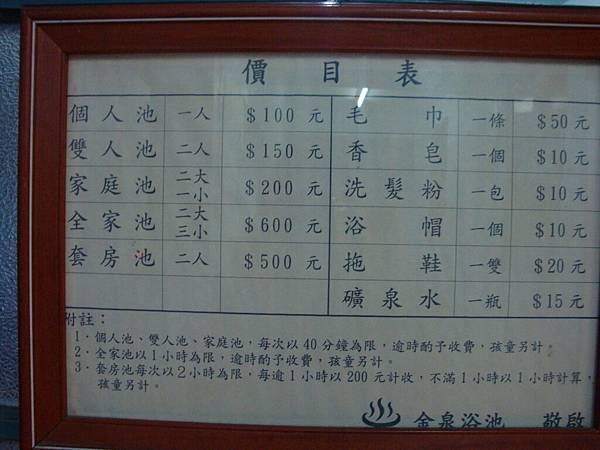 價目表
個人池 一人 $100元 毛巾 一條 $50元
雙人池 二人 $150元 香皂 一個 $10元
家庭池 二大一小 $200元 洗髮粉 一包 $10元
全家池 二大三小 $600元 浴帽 一個 $10元
套房池 二人 $500元 拖鞋 一雙 $20元
礦泉水 一瓶 $15元
附註：
1．個人池、雙人池、家庭池，每次以40分鐘為限，逾時酌予收費，孩童另計。
2．全家池以1小時為限，逾時酌予收費，孩童另計。
3．套房池每次以2小時為限，每逾1小時以200元計收，不滿1小時以1小時計算，
孩童另計。
金泉浴池 敬啟